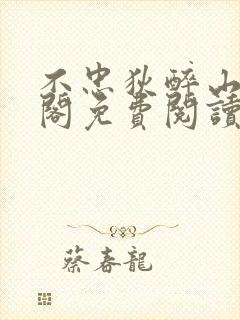 不忠狄醉山
閣免費閱讀
蔡春龍